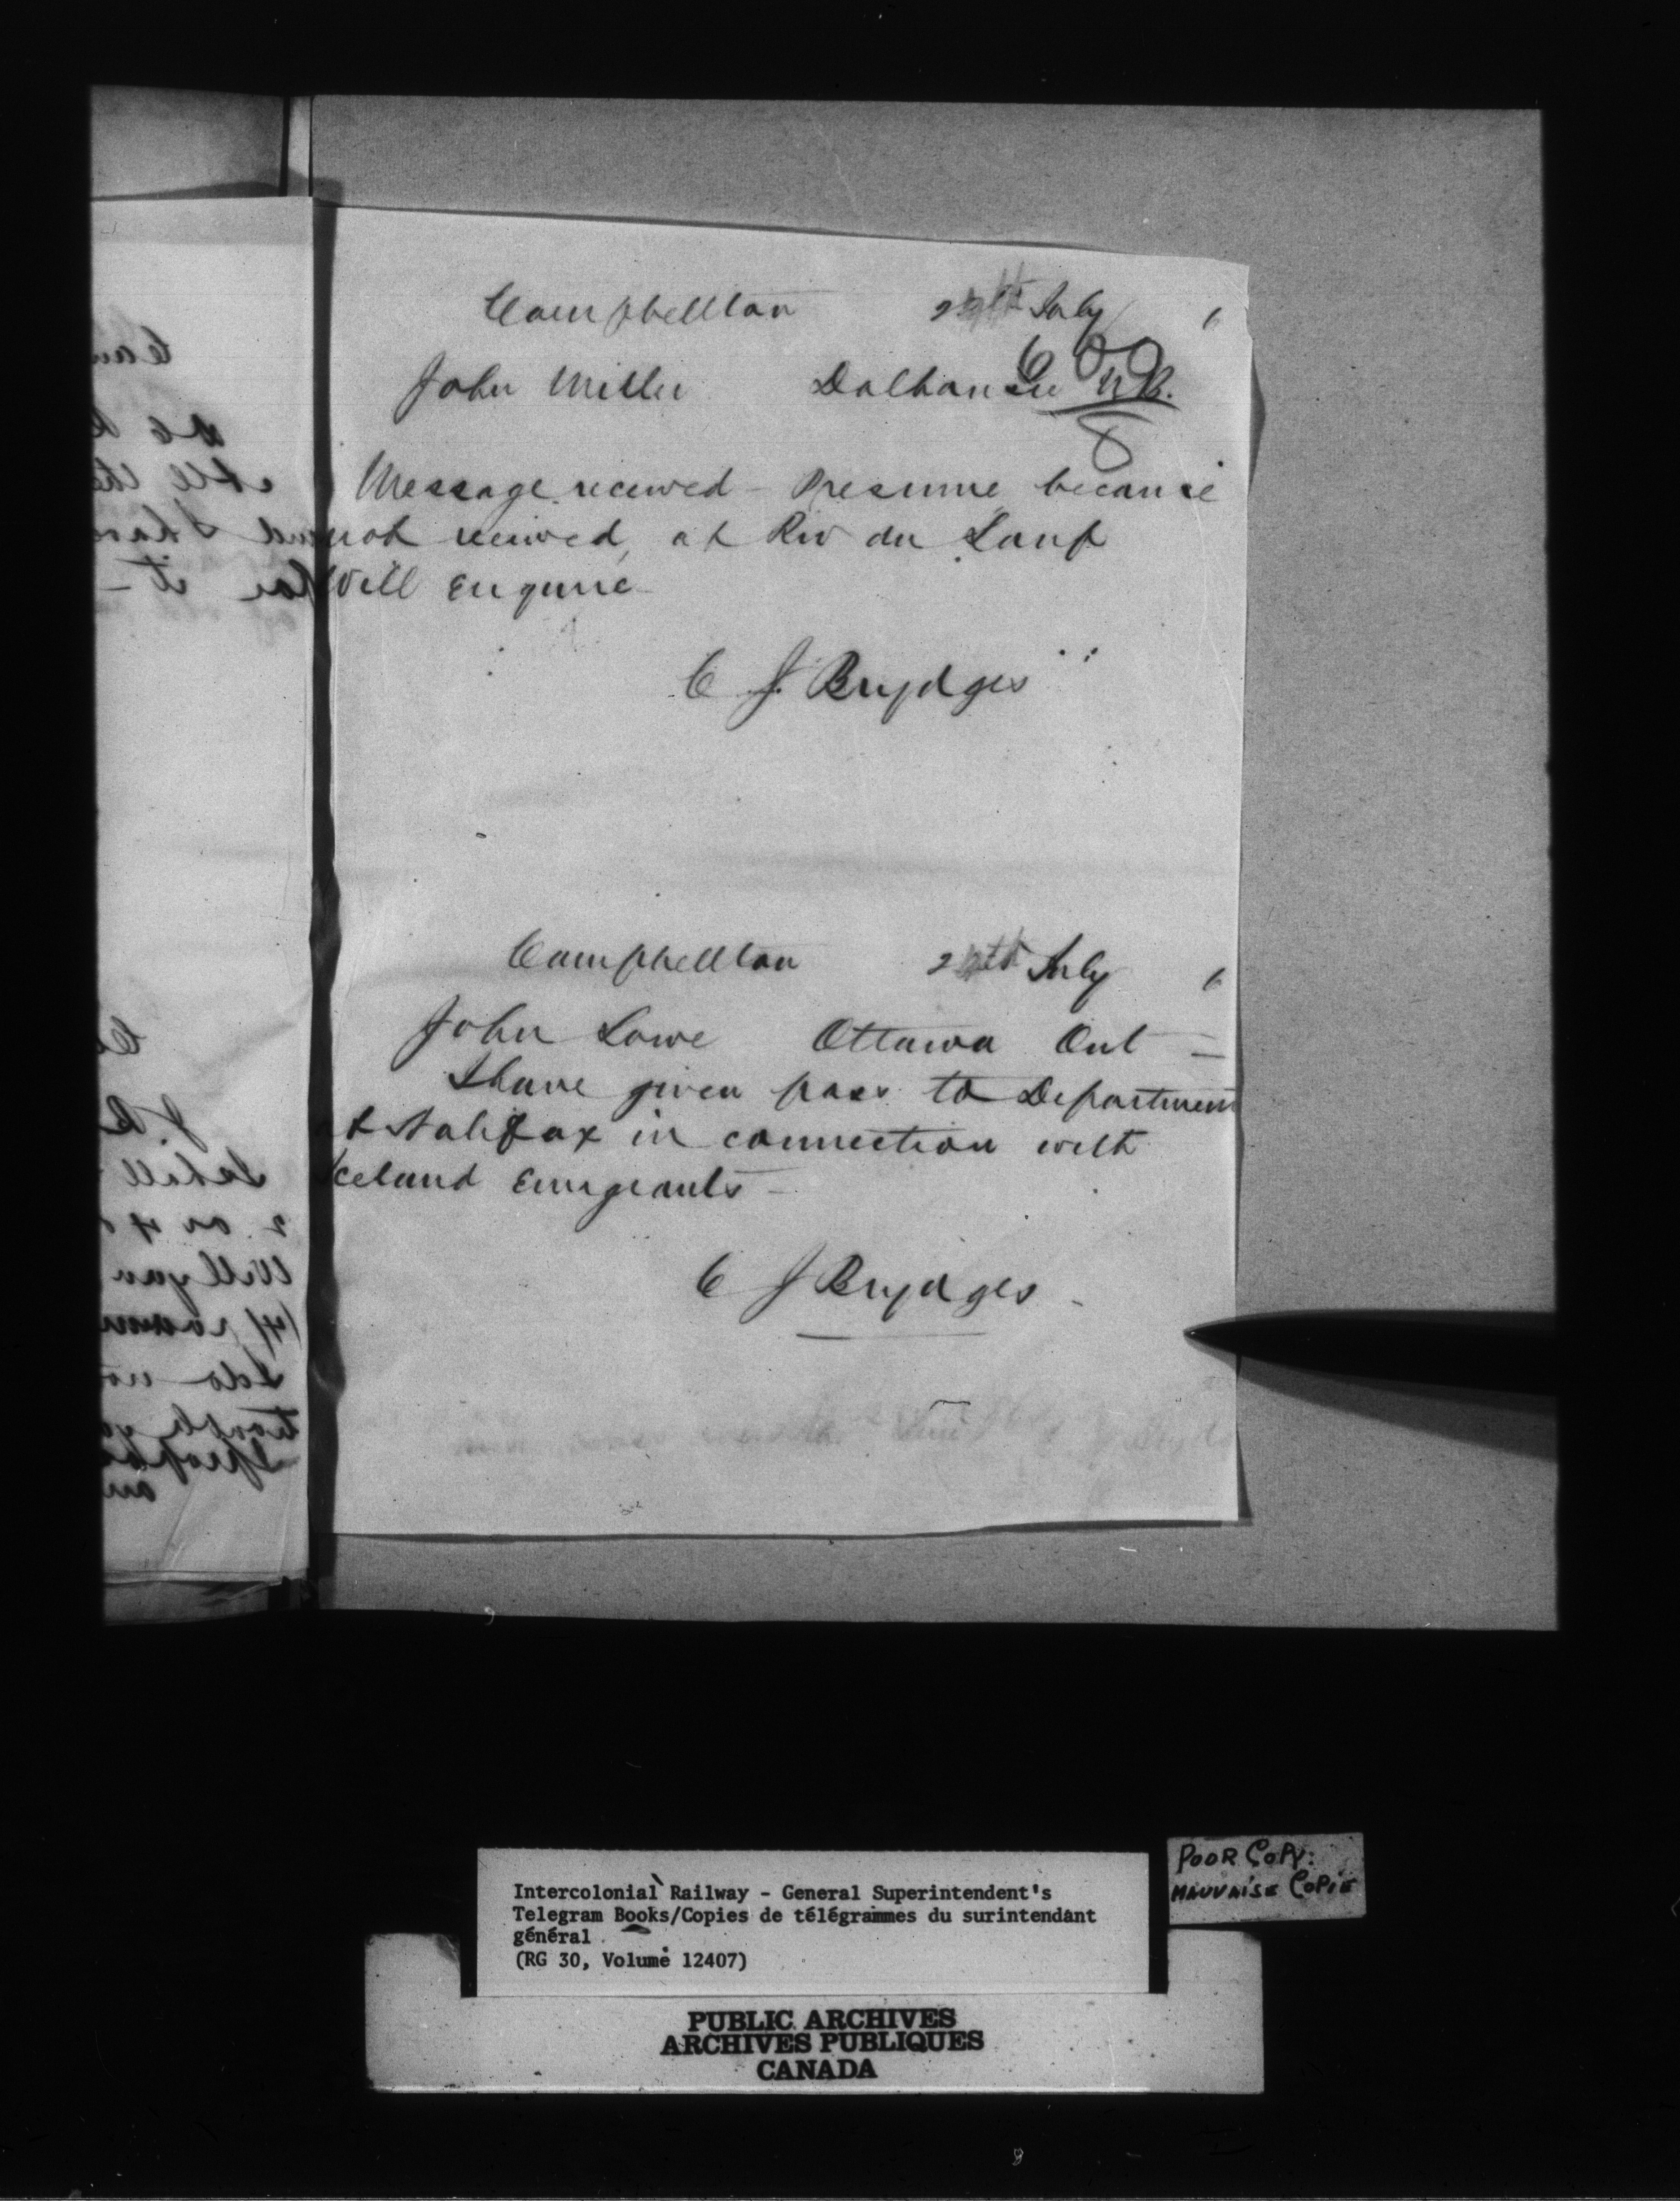 Campbellton July 6
600
John Miller Dalhousie N.B.
Message received - Presume because
not received at Riv du Loup
Will Enquire -
C J Brydges
Campbellton July 6
John Lowe Ottawa Ont -
I have given pass to Department
at Halifax in connection with
Iceland Emigrants -
C J Brydges -
Intercolonial Railway - General Superintendent's
Telegram Books/Copies de télégrammes du surintendant
général
(RG 30, Volume 12407)
POOR COPY.
MAUVAISE COPIE
PUBLIC ARCHIVES
ARCHIVES PUBLIQUES
CANADA